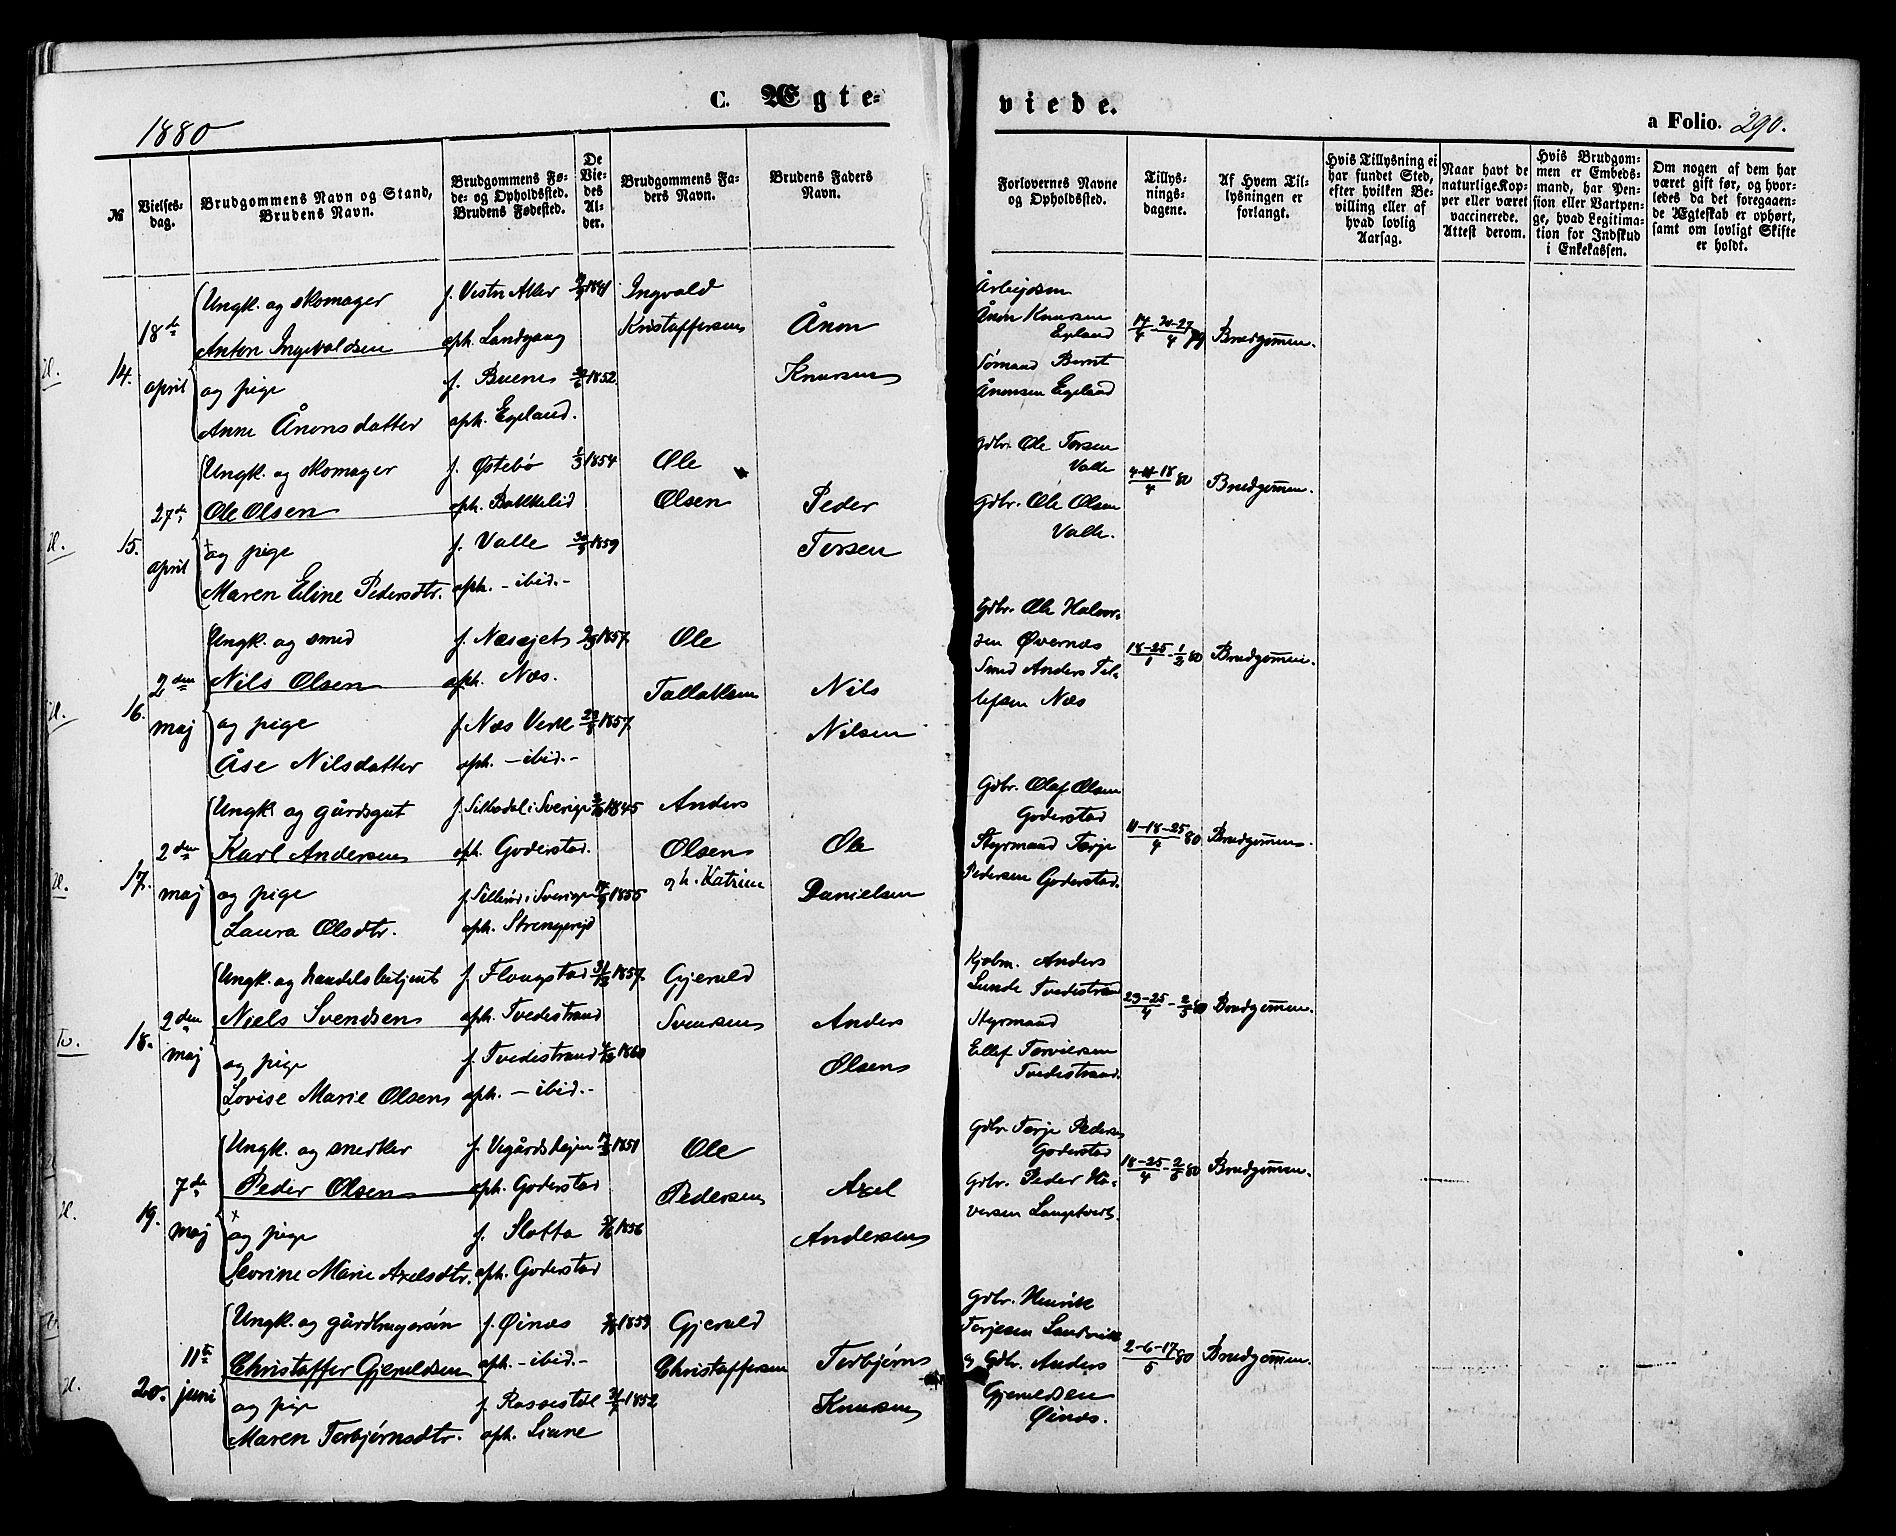 C. Ægte-
viede.
1880
a Folio. 290.
№
Vielses-
dag.
Brudgommens Navn og Stand,
Brudens Navn.
Brudgommens Fø-
de- og Opholdssted.
Brudens Fødested.
De
Vie-
des
Al-
der.
Brudgommens Fa-
ders Navn.
Brudens Faders
Navn.
Forlovernes Navne
og Opholdssted.
Tillys-
nings-
dagene.
Af Hvem Til-
lysningen er
forlangt.
Hvis Tillysning ei
har fundet Sted,
efter hvilken Be-
villing eller af
hvad lovlig
Aarsag.
Naar havt de
naturlige Kop-
per eller været
vaccinerede.
Attest derom.
Hvis Brudgom-
men er Embeds-
mand, har Pen-
sion eller Vartpen-
ge, hvad Legitima-
tion for Indskud
i Enkekassen.
Om nogen af dem har
været gift før, og hvor-
ledes da det foregaaen-
de Ægteskab er ophørt,
samt om lovligt Skifte
er holdt.
14.
18de
april
Ungk. og skomager
Anton Ingevaldsen
og pige
Anne Ånonsdatter
f. Vestre Aller
oph. Landgang
f. Buene
oph. Egeland.
1841
1852.
Ingvald
Kristoffersen
Ånon
Knutsen
Arbejdsm
Ånon Knutsen
Egeland
Sømand Bernt
Ånonsen Egeland
Brudgommen.
15.
27de
april
Ungk. og skomager
Ole Olsen
og pige
Maren Eline Pedersdtr.
f. Østebø
oph. Bakkelid
f. Valle
oph. - ibid. -
1854
1859
Ole
Olsen
Peder
Torsen
Gdbr. Ole Torsen
Valle
Gdbr. Ole Olsen
Valle.
4-11-18/4 80
Brudgommen.
16.
2den
maj
Ungk. og smed
Nils Olsen
og pige
Åse Nilsdatter
f. Næsejet
oph. Næs.
f. Næs Verk
oph. - ibid. -
1857.
1857.
Ole
Tallaksen
Nils
Nilsen
Gdbr. Ole Halvor-
sen Øvernæs
Smed Anders Tel-
lefsen Næs
18-25/1 - 1/2 80
Brudgommen.
17.
2den
maj
Ungk og gårdsgut
Karl Andersen
og pige
Laura Olsdtr.
f. Silbodal i Sverige
oph. Goderstad.
f. i Sverige
oph. Strengereid
1845
1855
Anders
Olsen
og h. Katrine
Ole
Danielsen
Gdbr. Olaf Olsen
Goderstad
Styrmand Terje
Pedersen Goderstad.
11-18-25/4 80
Brudgommen.
18.
2den
maj
Ungk. og handelsbetjent
Niels Svendsen
og pige
Lovise Marie Olsen
f. Flougstad
oph. Tvedestrand
f. Tvedestrand
oph. - ibid. -
1857.
1860
Gjeruld
Svensen
Anders
Olsen
Kjøbm. Anders
Lunde Tvedestrand
Styrmand
Ellef Terviersen
Tvedestrand.
23-25/4 - 2/5 80
Brudgommen.
19.
7de
maj
Ungk. og snedker
Peder Olsen
og pige
Severine Marie Axelsdtr.
f. Vegårdshejen
oph. Goderstad
f. Slotta
oph. Goderstad
1851
1856
Ole
Pedersen
Axel
Andersen
Gdbr Terje Pedersen
Goderstad
Gdbr. Peder Ha-
versen Langetveit.
18-25/4 - 2/5 80
Brudgommen.
20.
11te
juni
Ungk. og gårdbrugersøn
Christoffer Gjeruldsen
og pige
Maren Torbjørnsdtr.
f. Øinæs
oph. - ibid. -
f. Rossestøl
oph. Liane
1859
1852
Gjeruld
Christoffersen
Torbjørn
Knutsen
Gdbr. Henrik
Terjesen Sandvik
og Gdbr. Anders
Gjeruldsen
Øinæs.
2-6-17/5 80
Brudgommen.